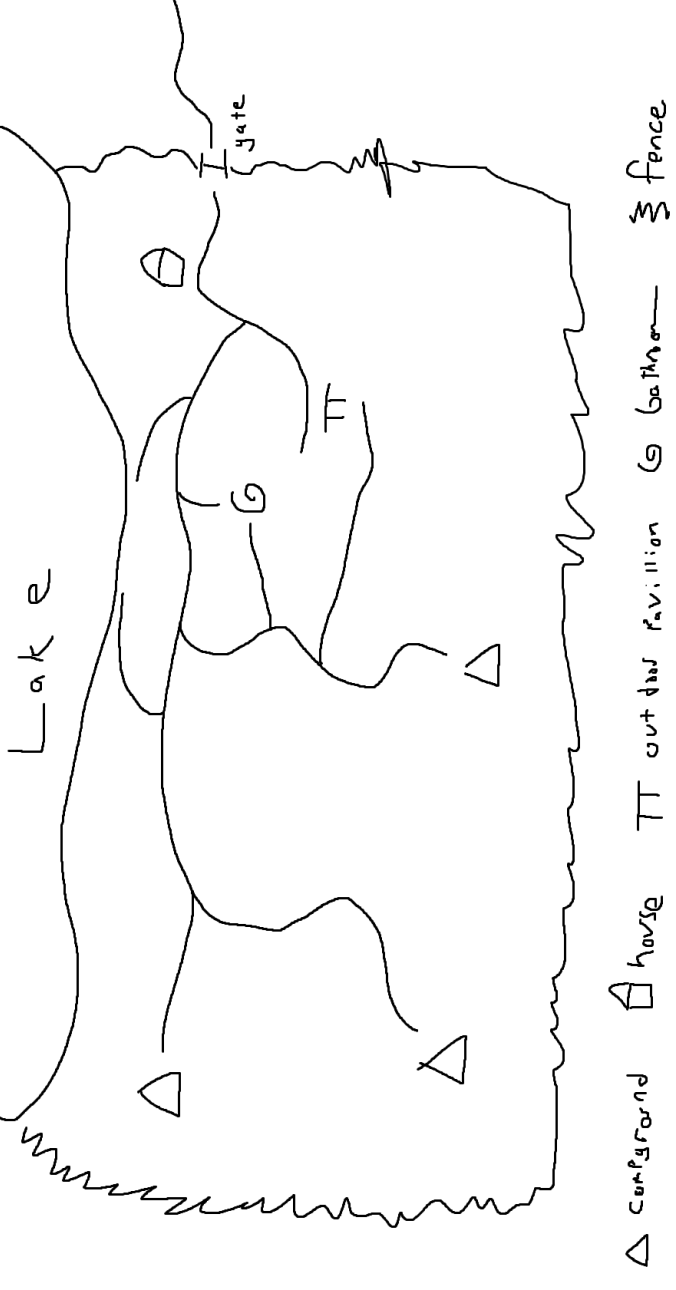 Lake
gate
campground house out door pavillion bathroom fence